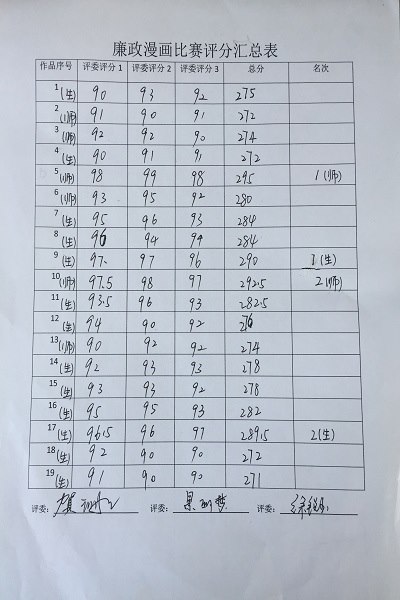 廉政漫画比赛评分汇总表
作品序号 评委评分1 评委评分2 评委评分3 总分 名次
1(生) 90 93 92 275
2(师) 91 90 91 272
3(师) 92 92 90 274
4(生) 90 91 91 272
5(师) 98 99 98 295 1(师)
6(师) 93 95 92 280
7(生) 95 96 93 284
8(生) 96 94 94 284
9(生) 97. 97 96 290 1(生)
10(师) 97.5 98 97 292.5 2(师)
11(生) 93.5 96 93 282.5
12(生) 94 90 92 276
13(师) 90 92 92 274
14(生) 92 93 93 278
15(生) 93 93 92 278
16(生) 95 95 93 282
17(生) 96.5 96 97 289.5 2(生)
18(生) 92 90 90 272
19(生) 91 90 90 271
评委: 评委: 评委: